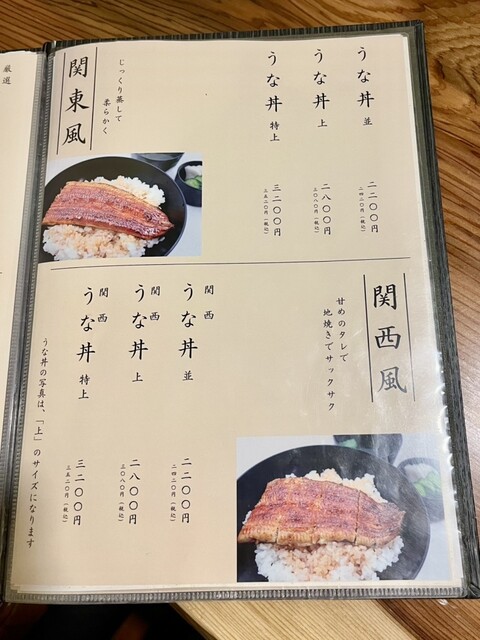 厳選
関東風
じっくり蒸して
柔らかく
うな丼 並
二二〇〇円
二四二〇円(税込)
うな丼 上
二八〇〇円
三〇八〇円(税込)
うな丼 特上
三二〇〇円
三五二〇円(税込)
関西風
甘めのタレで
地焼きでサックサク
関西
うな丼 並
二二〇〇円
二四二〇円(税込)
関西
うな丼 上
二八〇〇円
三〇八〇円(税込)
関西
うな丼 特上
三二〇〇円
三五二〇円(税込)
うな丼の写真は、「上」のサイズになります